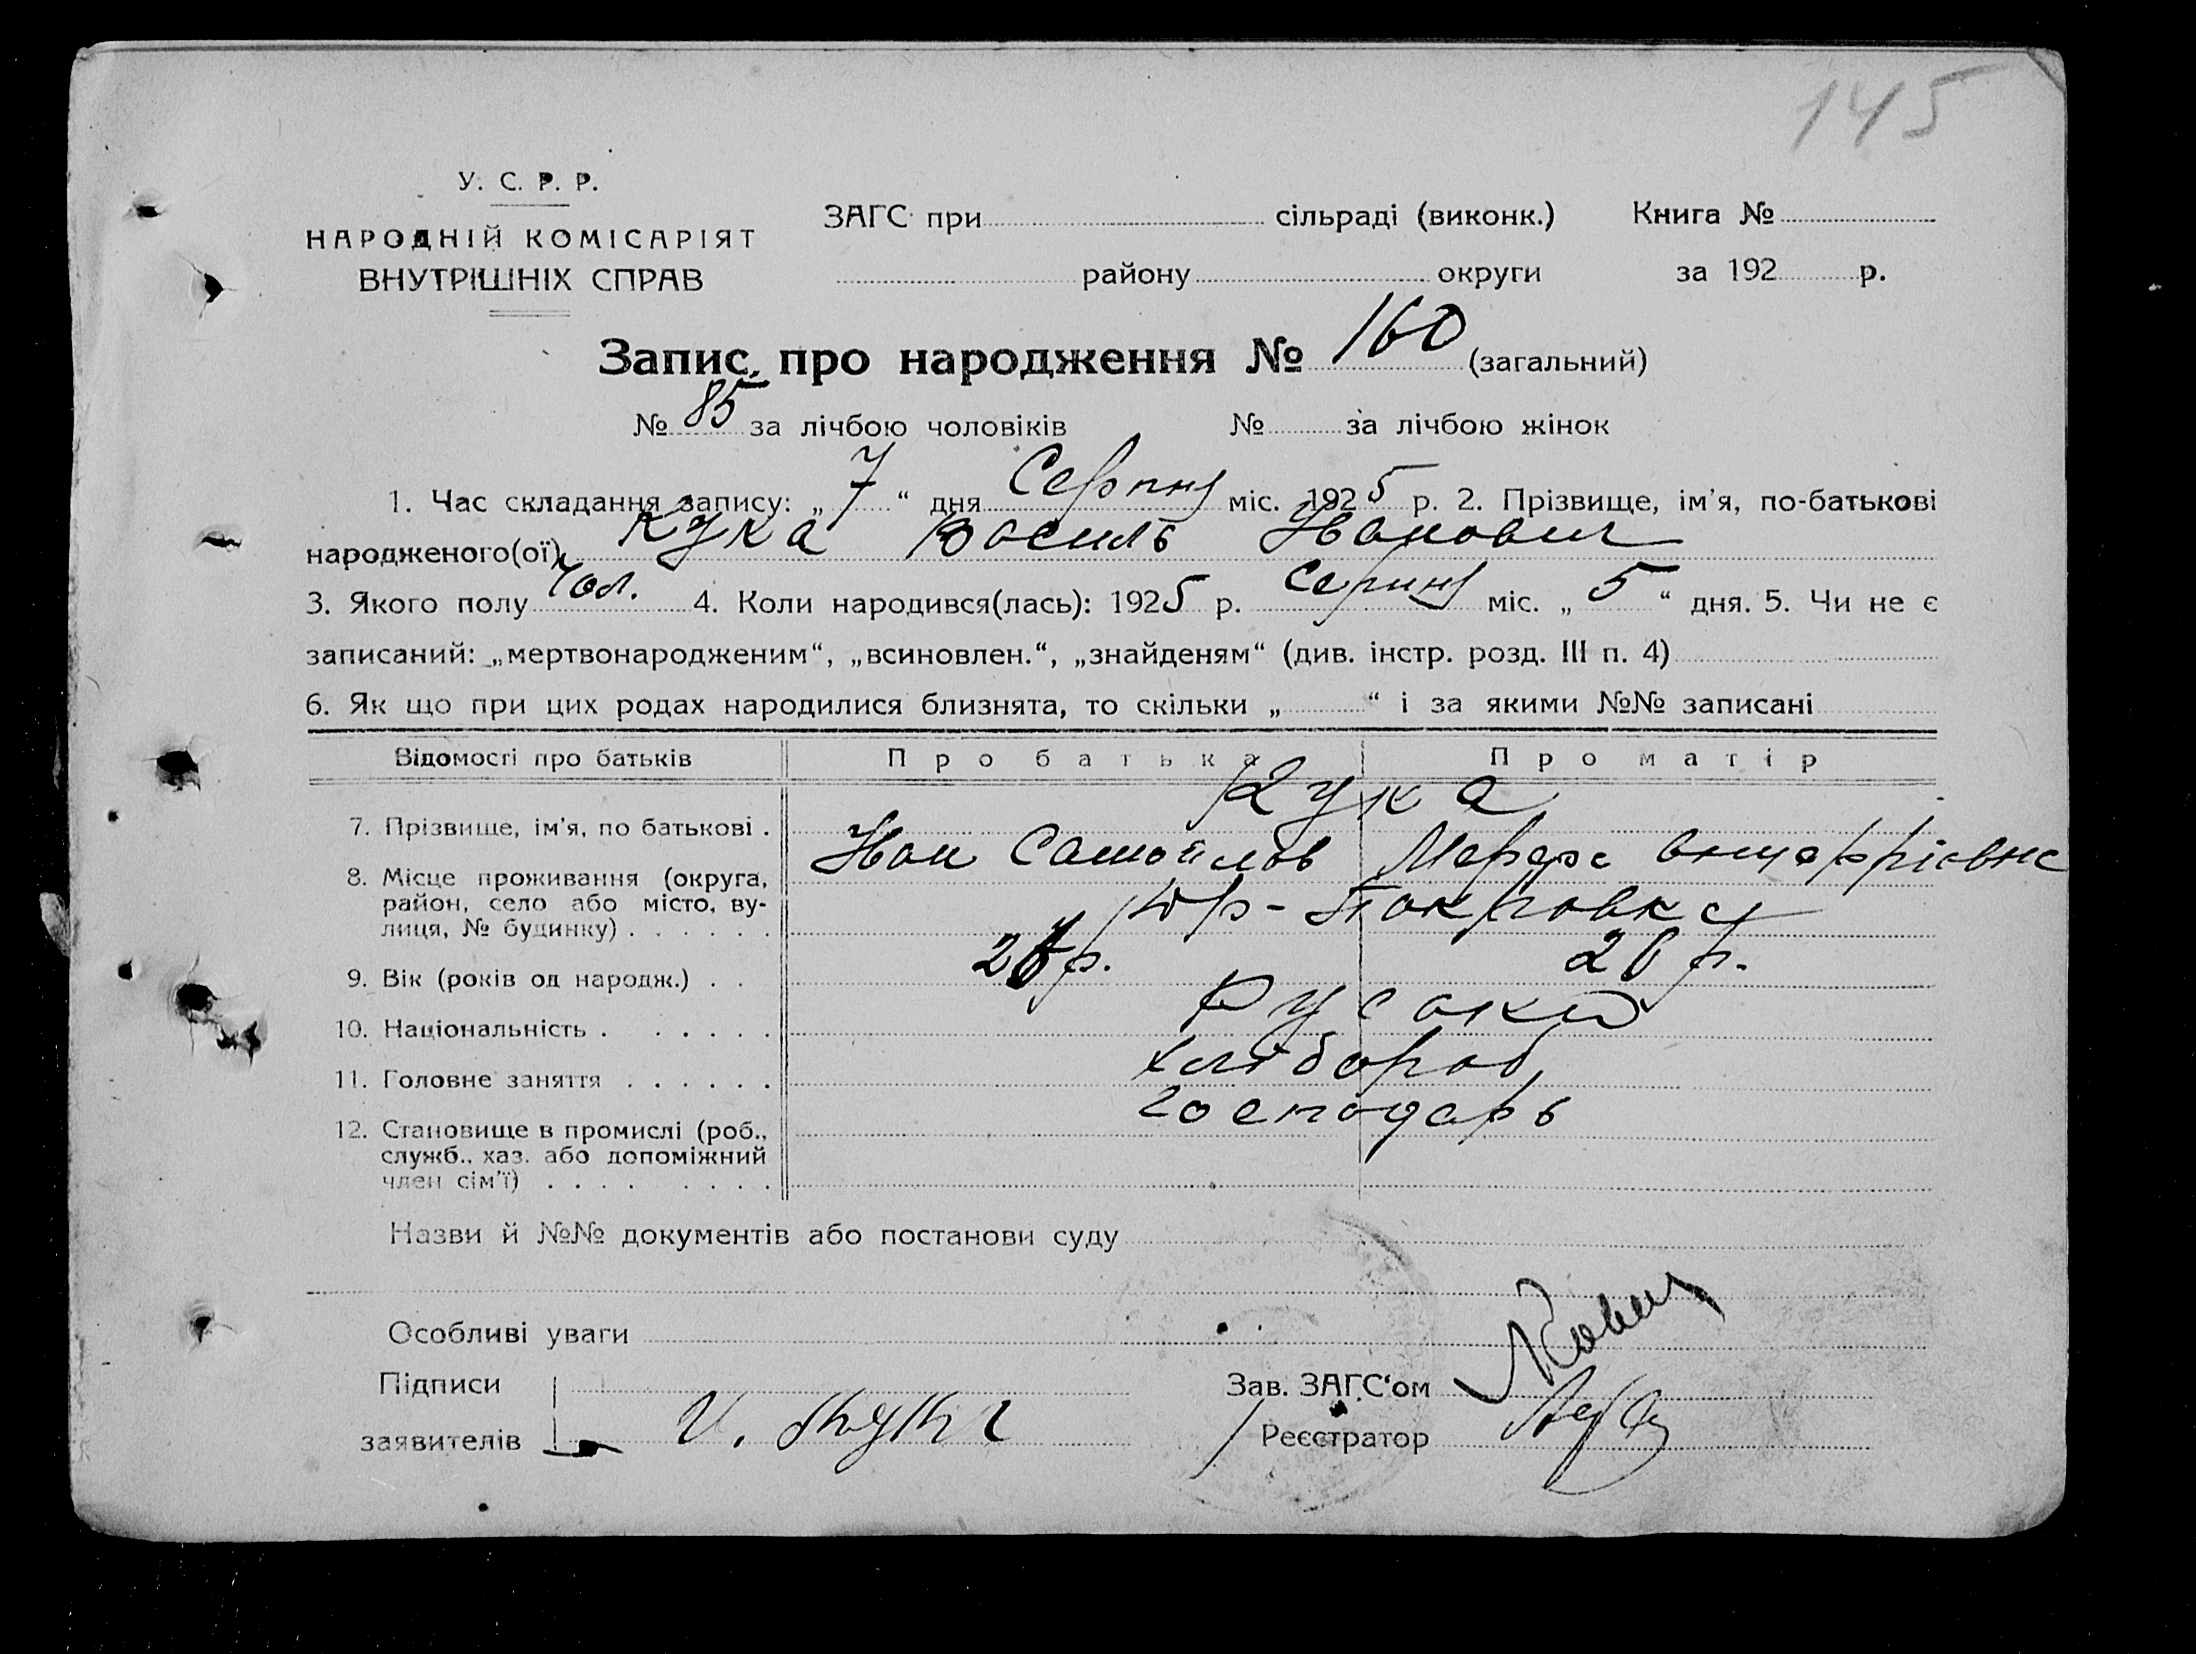 145
У. С. Р. Р.
НАРОДНІЙ КОМІСАРІЯТ
ВНУТРІШНІХ СПРАВ
ЗАГС при сільраді (виконк.) Книга №
району округи за 192 р.
Запис про народження № 160 (загальний)
№ 85 за лічбою чоловіків № за лічбою жінок
1. Час складання запису: „ 7 “ дня Серпня міс. 1925 р. 2. Прізвище, ім'я, по-батькові
народженого(ої) Кука Василь Иванович
3. Якого полу Чол. 4. Коли народився(лась): 1925 р. Серпня міс. „ 5 “ дня. 5. Чи не є
записаний: „мертвонародженим“, „всиновлен.“, „знайденям“ (див. інстр. розд. III п. 4)
6. Як що при цих родах народилися близнята, то скільки „ “ і за якими №№ записані
Відомості про батьків Про батька Про матір
Кука
7. Прізвище, ім'я, по батькові . Иван Самойлов
8. Місце проживання (округа,
район, село або місто, ву-
лиця, № будинку) . . . . . . Юр-Покровка
9. Вік (років од народж.) . . р. 26 р.
10. Національність . . . . . . Русаки
11. Головне заняття . . . . . . хлібороб
господарь
12. Становище в промислі (роб.,
служб., хаз. або допоміжний
член сім'ї) . . . . . . . .
Назви й №№ документів або постанови суду
Особливі уваги
Підписи Зав. ЗАГС‘ом
заявителів И. Кука Реєстратор